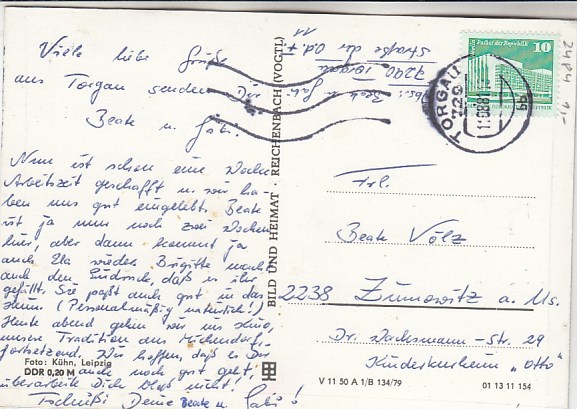 Viele liebe Grüße
aus Torgau senden Dir
Beate u. Gabi.
Nun ist schon eine Woche
Arbeitszeit geschafft u. wir ha-
ben uns gut eingelebt. Beate
ist ja nun noch zwei Wochen
hier, aber dann kommt ja
auch Ela wieder. Brigitte macht
auch den Eindruck, daß es ihr
gefällt. Sie paßt auch gut in das
Heim (Personalmäßig natürlich!)
Heute abend gehen wir ins Kino,
unsere Tradition aus
fortsetzend. Wir hoffen, daß es Dir
auch noch gut geht,
überarbeite Dich bloß nicht!
Tschüßi Deine Beate u. Gabi!
Foto: Kühn, Leipzig
DDR 0,20 M
BILD UND HEIMAT · REICHENBACH (VOGTL)
Abs.: Beate u. Gabi
7290 Torgau
Straße der O.d.F.
11
Palast der Republik
10
TORGAU
7290
11.0881
2484 1,-
Frl.
Beate Völz
2238 Zinnowitz a. Us.
Dr. Wachsmann-Str. 29
Kinderkurheim "Otto"
V 11 50 A 1/B 134/79
01 13 11 154